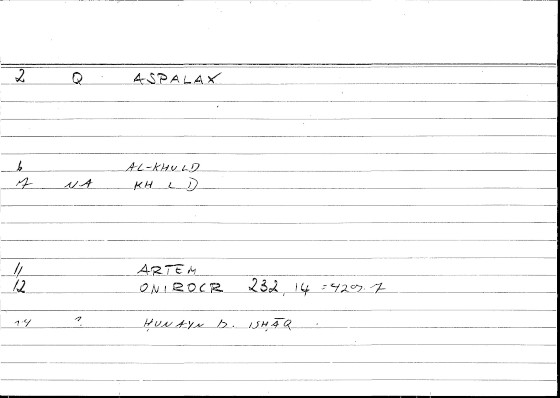 2 Q ASPALAX
6 AL-KHULD
7 NA KH L D
11 ARTEM
12 ONIROCR 232, 14 = 429.7
14 ? ḤUNAYN b. ISḤĀQ